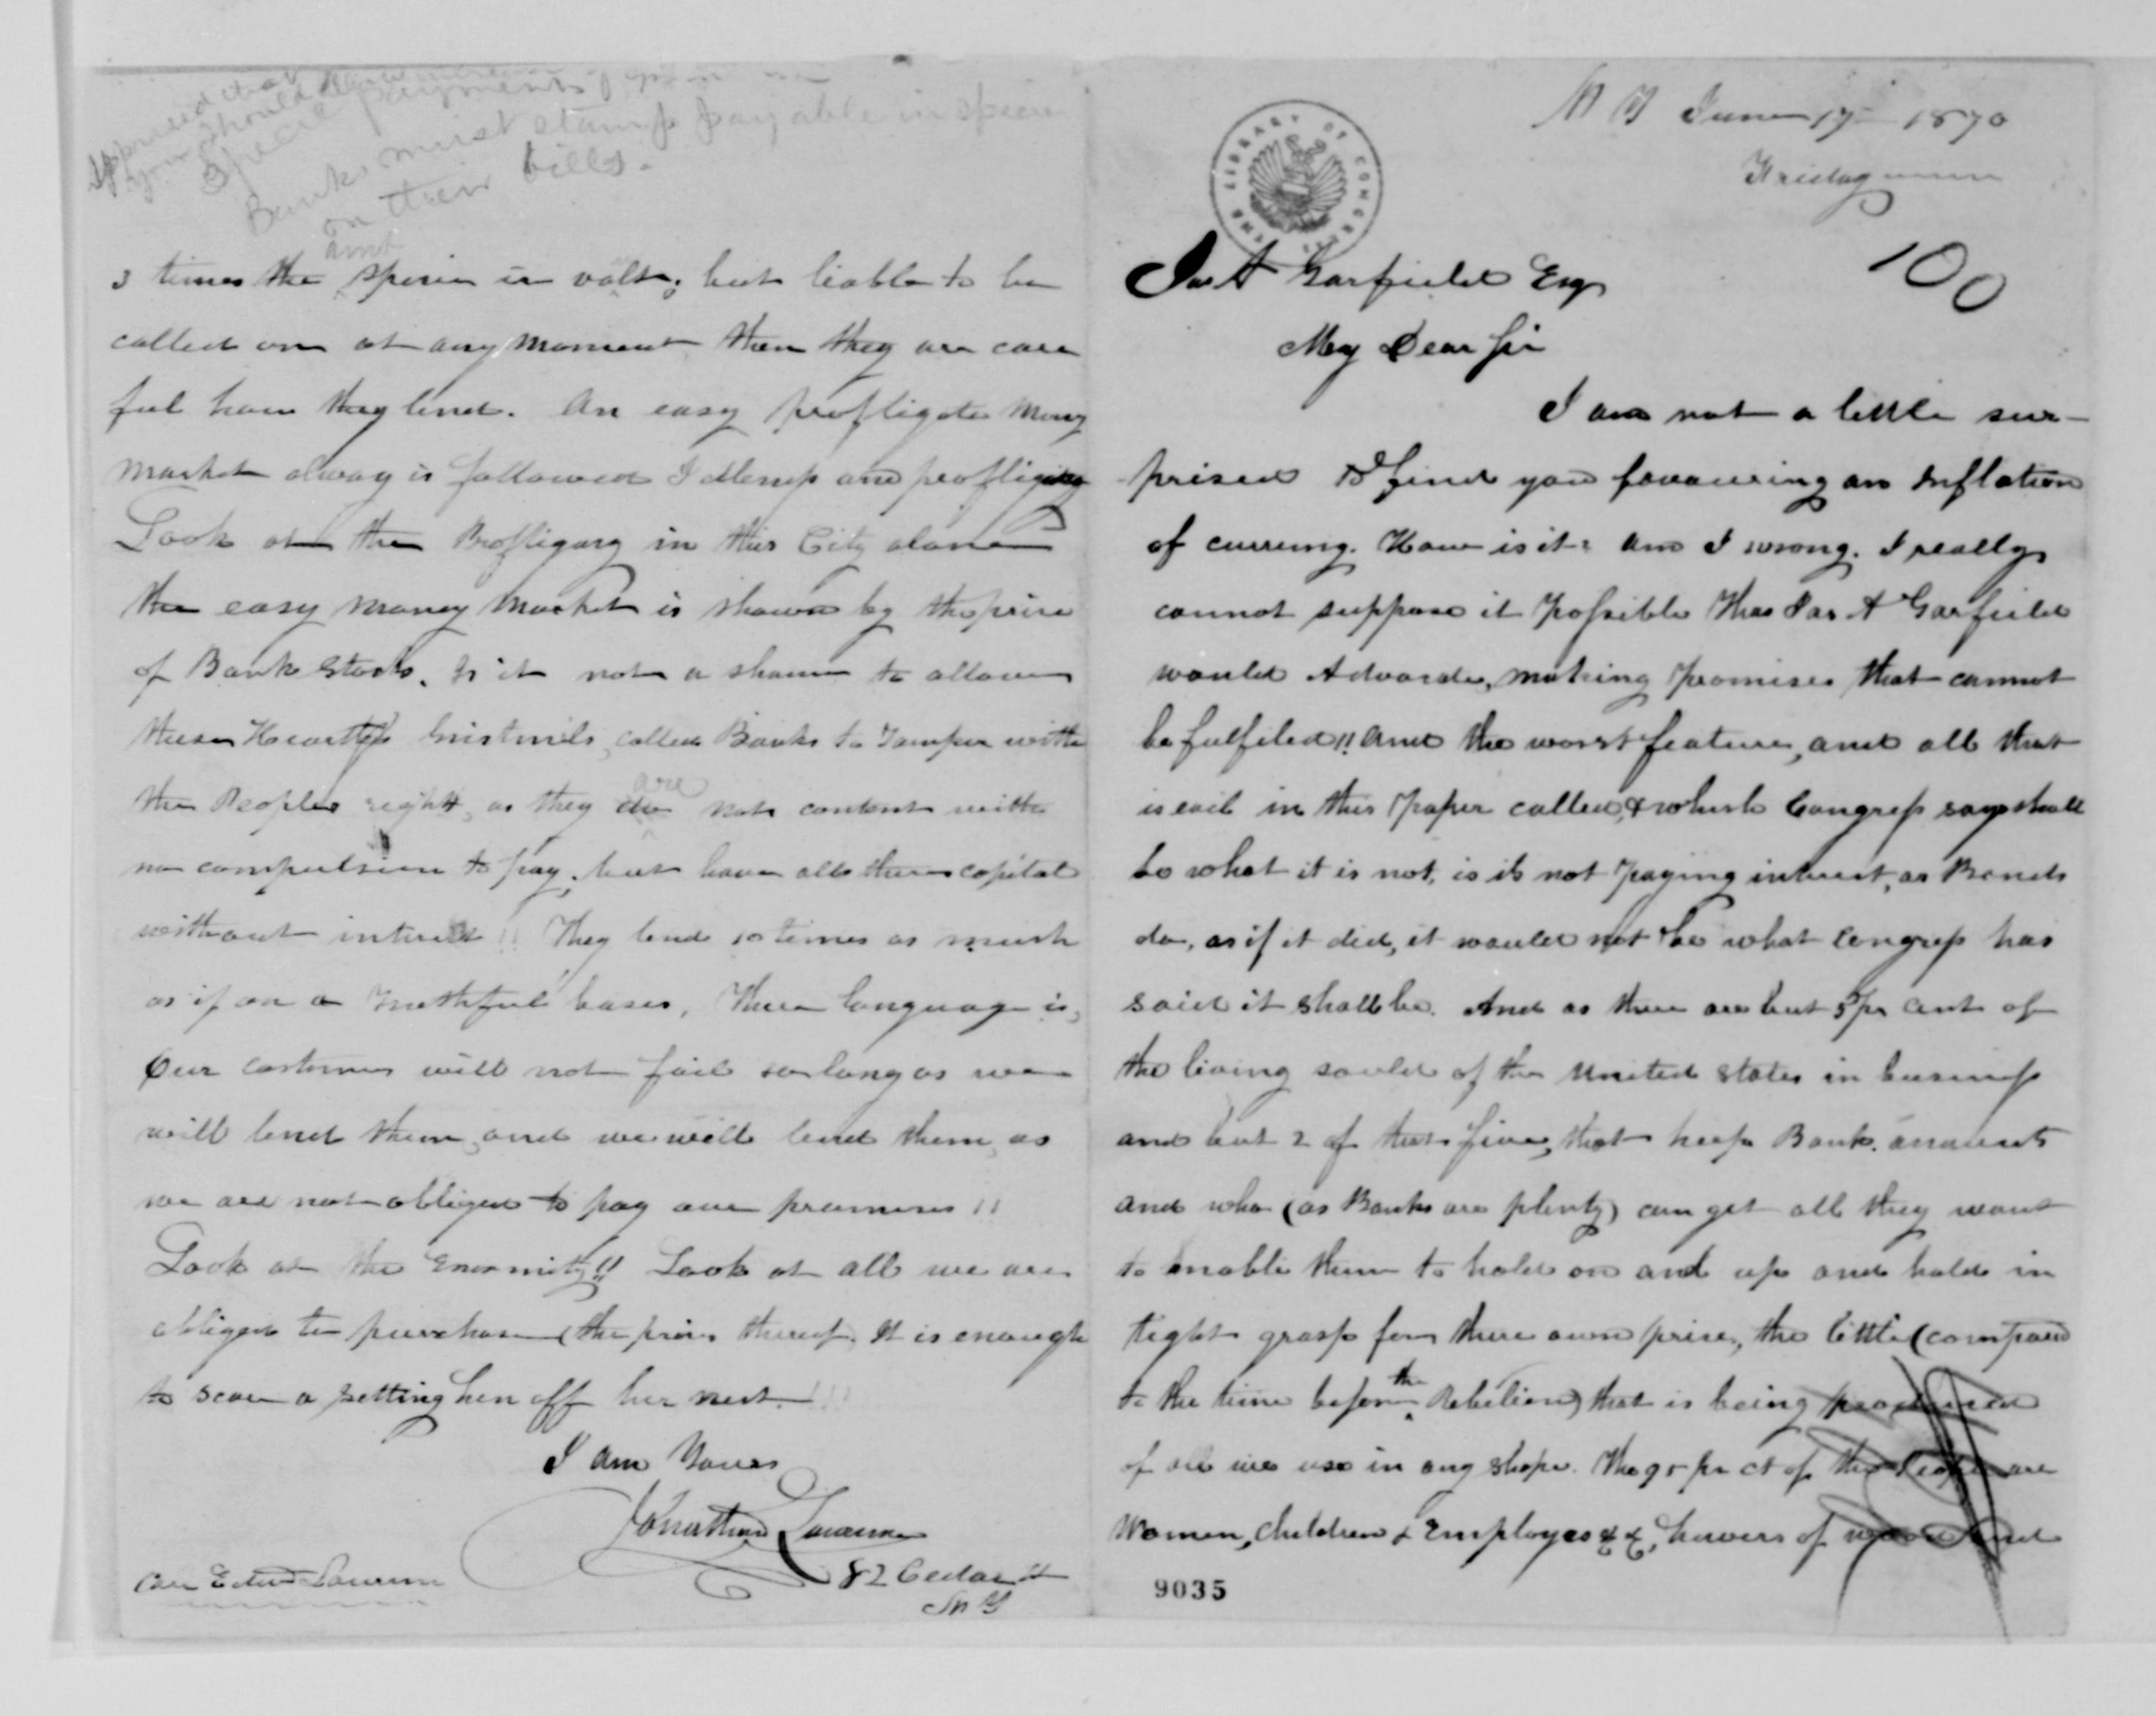 N Y June 17 1870
Friday
THE LIBRARY OF CONGRESS
100
Jas A Garfield Esq
My Dear Sir
I am not a little sur-
prised to find you favouring an Inflation
of currency. How is it? am I wrong. I really
cannot suppose it possible that Jas A Garfield
would Advocate, making promises that cannot
be fulfiled!! and the worst feature, and all that
is evil in this paper called, & which Congress says shall
be what it is not, is its not paying interest, as Bonds
do, as if it did, it would not be what Congress has
said it shall be. And as there are but 5 pr cent of
the living souls of the United States in business
and but 2 of that five, that keep Bank accounts
and who (as Banks are plenty) can get all they want
to enable them to hold on and up and hold in
tight grasp for there own price, the little (compared
to the time before the Rebelion) that is being produced
of all we use in any shape. The 95 pr ct of the People are
Women, Children & Employes &c &c, hewers of wood and
9035
Specie payments
Banks must stamp payable in specie
on their bills.
3 times the amt specie in valts; but liable to be
called on at any moment then they are care
ful how they lend. An easy profligate money
market alway is followed Idleness and profligacy
Look at the Profligacy in this City alone
the easy money market is shown by the price
of Bank Stock. Is it not a shame to allow
these Heartless called Banks to Tamper with
the Peoples rights, as they are not content with
no compulsion to pay, but have all there capital
without interest!! They lend 10 times as much
as if on a Truthful bases, There language is,
Our customers will not fail so long as we
will lend them, and we will lend them, as
we are not obliged to pay our promises!!
Look at the Enormity!! Look at all we are
obliged to purchase (the price thereof. It is enough
to scare a setting hen off her nest!!!
I am Yours
Jonathan Lawrence
82 Cedar St
N Y
Care Edwd Lawrence